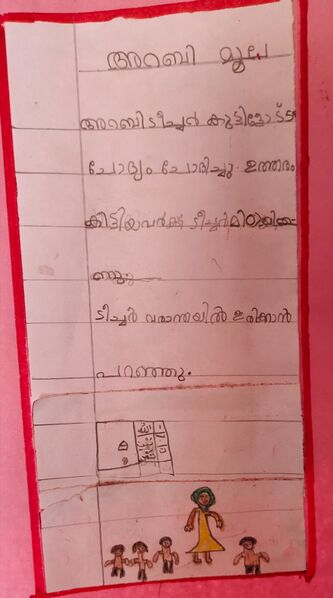 അറബി മൂല
അറബി ടീച്ചർ കുട്ടികളോട്
ചോദ്യം ചോദിച്ചു. ഉത്തരം
കിട്ടിയവർക്ക് ടീച്ചർ
ടീച്ചർ വരാന്തയിൽ ഇരിക്കാൻ
പറഞ്ഞു.